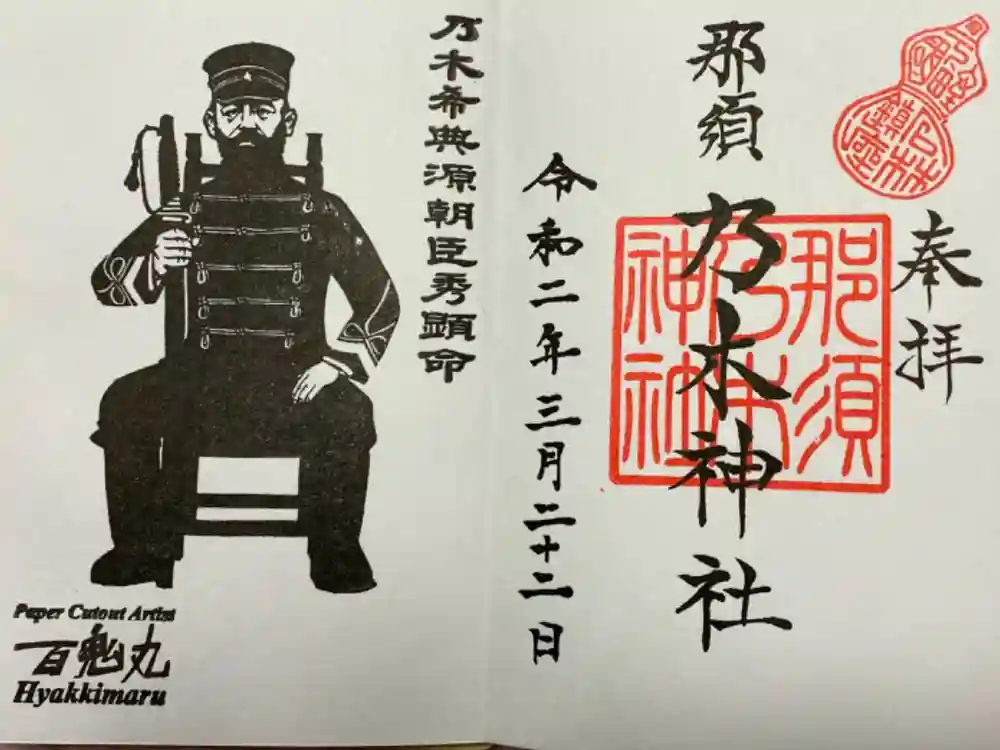 奉拝
那須
乃木神社
那須
乃木
神社
令和二年三月二十二日
乃木希典源朝臣秀顕命
Paper Cutout Artist
百鬼丸
Hyakkimaru